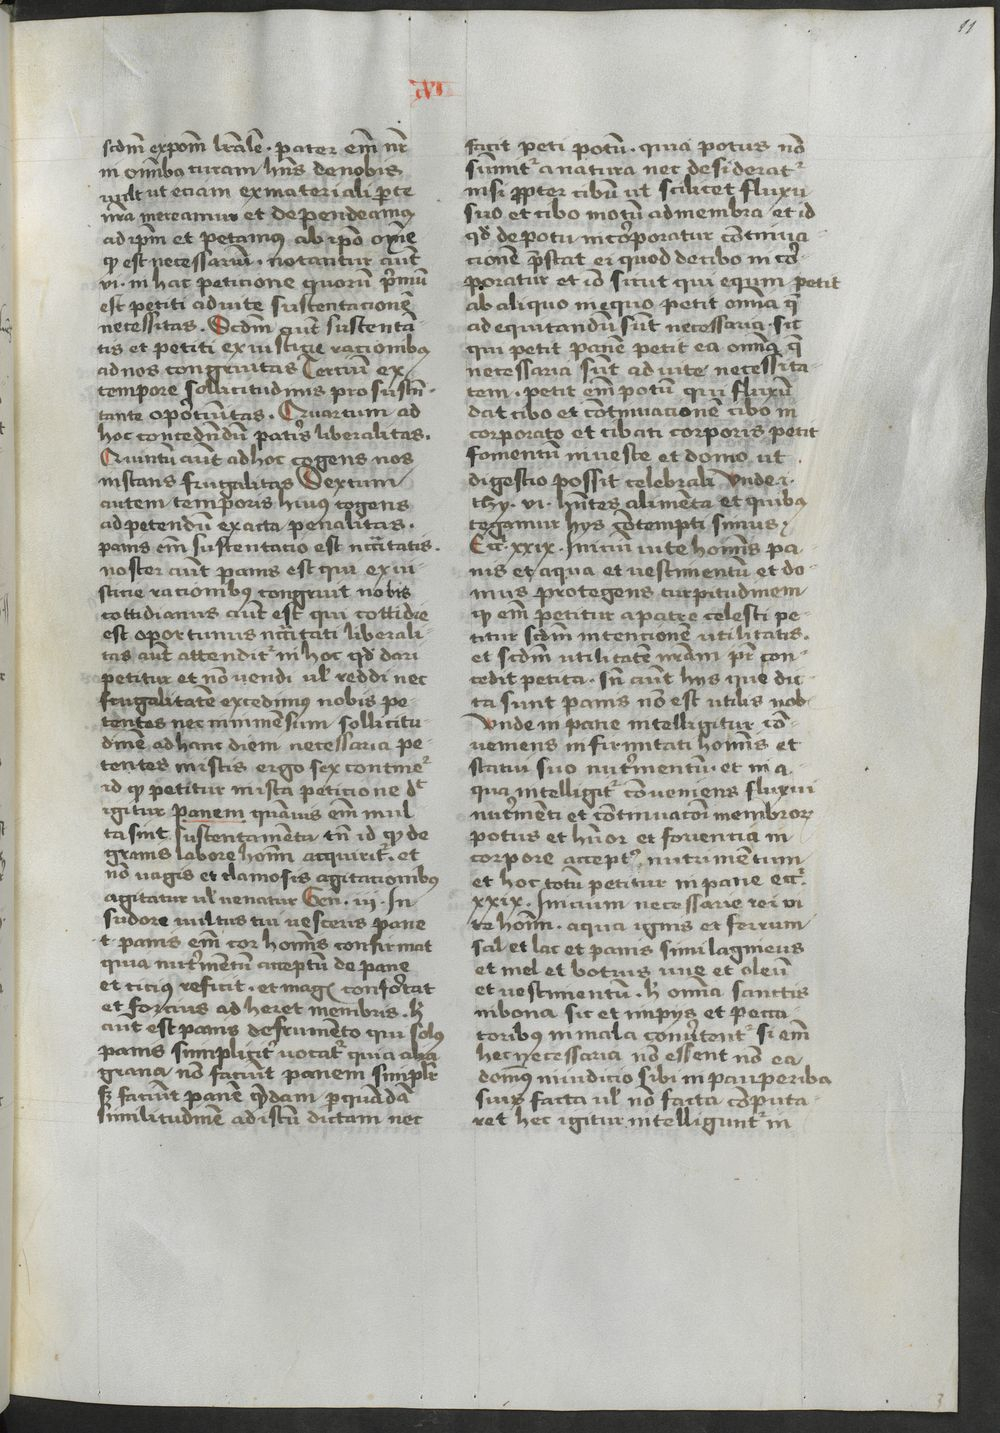 11
xvi
scdm̄ expom̄ lrãlē · pater em̄ nr̄
in om̄ibꝯ curam hn̄s de nobis
uult ut eciam ex materiali parte
nr̄a nectamur et dependeamus
ad ipm̄ et petamus ab ipō om̄e
qɂ est necessariū · notantur aut̄
vi · in hac peticione quorū pͥmū
est petiti ad uite sustentacionē
necessitas . Scdm̄ aut̄ sustentā-
tis et petiti ex iusticie racionibꝯ
ad nos congruitas Terciū ex
tempore sollicitudinis pro susten̄-
tante oportūitas . Quartum ad
hoc concedn̄dū patͥs liberalitas .
Quintū aut̄ ad hoc cogens nos
instans frugalitas Sextum
autem temporis huiꝯ cogens
ad petendū exacta penalitas .
panis em̄ sustentacio est nccīitatis .
noster aut̄ panis est qui ex iu-
sticie racionibꝯ congruit nobis
cottidianus aut̄ est qui cottidie
est oportunus nccīitati liberali-
tas aut̄ attenditͬ in hoc qd̄ dari
petitur et nō uendi ul̄ reddi nec
frugalitatē excedimus nobis pe-
tentes nec inmensum sollicitu-
dinē ad hanc diem necessaria pe-
tentes in istis ergo sex continetͬ
id qɂ petitur in ista peticione dͭ
igitur panem quāuis em̄ mul
ta sint sustentamēta tn̄ id qɂ de
granis labore hom̄ acquiritͬ . et
nō uagis et clamosis agitacionibꝯ
agitatur ul̄ uenatur Gen . iii . In
sudore uultus tui uesceris pane
t · panis em̄ cor hom̄is confirmat
quia nutͥmentū acceptū de pane
et cicius reficit . et magis confortat
et forcius adheret membris . hͥ
aut̄ est panis de frumēto qui solꝯ
panis simplicitͬ uocatͬ quia alia
grana nō faciūt panem simpltͬ
sꝫ faciūt panē qd̄dam per quādā
similitudinē ad istū dictam nec
facit peti potū . quia potus nō
sumitͬ a natura nec desideratͬ
nisi ppͬter cibū ut scilicet fluxu
suo et cibo motū ad membra et id
qd̄ de potu incͦrporatur cōtinua-
cione p̄stat ei quod de cibo in cͦr-
poratur et iō sicut qui equm petit
ab aliquo in equo petit om̄ia q̄
ad equitandū sūt necessaria . sic
qui petit panē petit ea om̄ia q̄
necessaria sūt ad uite necessita-
tem . petit em̄ potū qui fluxū
dat cibo et cōtinuacionē cibo in
corporato et cibati corporis petit
fomentū in ueste et domo ut
digestio possit celebrari Vnde i·
thy . vi . hn̄tes alimēta et quibꝯ
tegamur hys cōtempti simus
Ecͨ . xxix . Iniciū uite hom̄is pa-
nis et aqua et uestimentū et do-
mus protegens turpitudinem
qɂ em̄ petitur a patre celesti pe-
titur scdm̄ intencionē utilitatis .
et scdm̄ utilitatē nr̄am pr̄ con-
cedit petita . Sn̄ aut̄ hys que dic-
ta sunt panis nō est utilis nob̄
Vnde in pane intelligitur cō-
ueniens infirmitati hom̄is et
statui suo nutͥmentū . et in a-
qua intelligitͬ cōueniens fluxui
nutͥmēti et cōtinuacōi membrorꝝ
potus et hūor et fouencia in
corpore acceptꝯ nutrimentum
et hoc totū petitur in pane ecͨͥ
xxix . Inicium necessarie rei ui
te hom̄ . aqua ignis et ferrum
sal et lac et panis similagineus
et mel et botrus uue et oleū
et uestimentū . hͥ om̄ia sanctis
in bona sic et impys et pecca-
toribus in mala cōuͥtentͬ si em̄
hec necessaria nō essent nō ea
domꝯ in iudicio sibi in pauperibꝯ
suis facta ul̄ nō facta cōputa-
ret hec igitur intelliguntͬ in